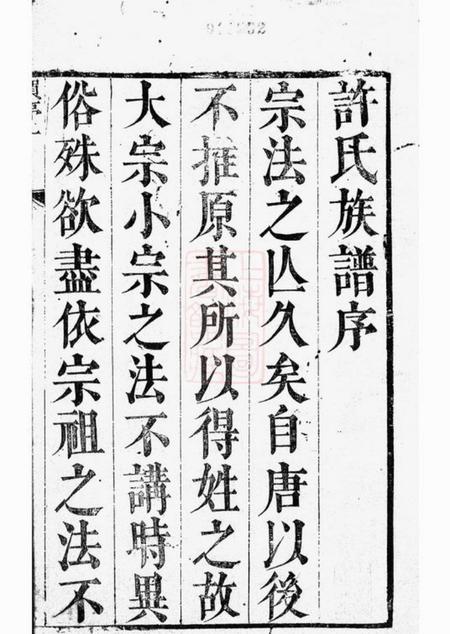 許氏族譜序
宗法之亾久矣自唐以後
不推原其所以得姓之故
大宗小宗之法不講時異
俗殊欲盡依宗祖之法不